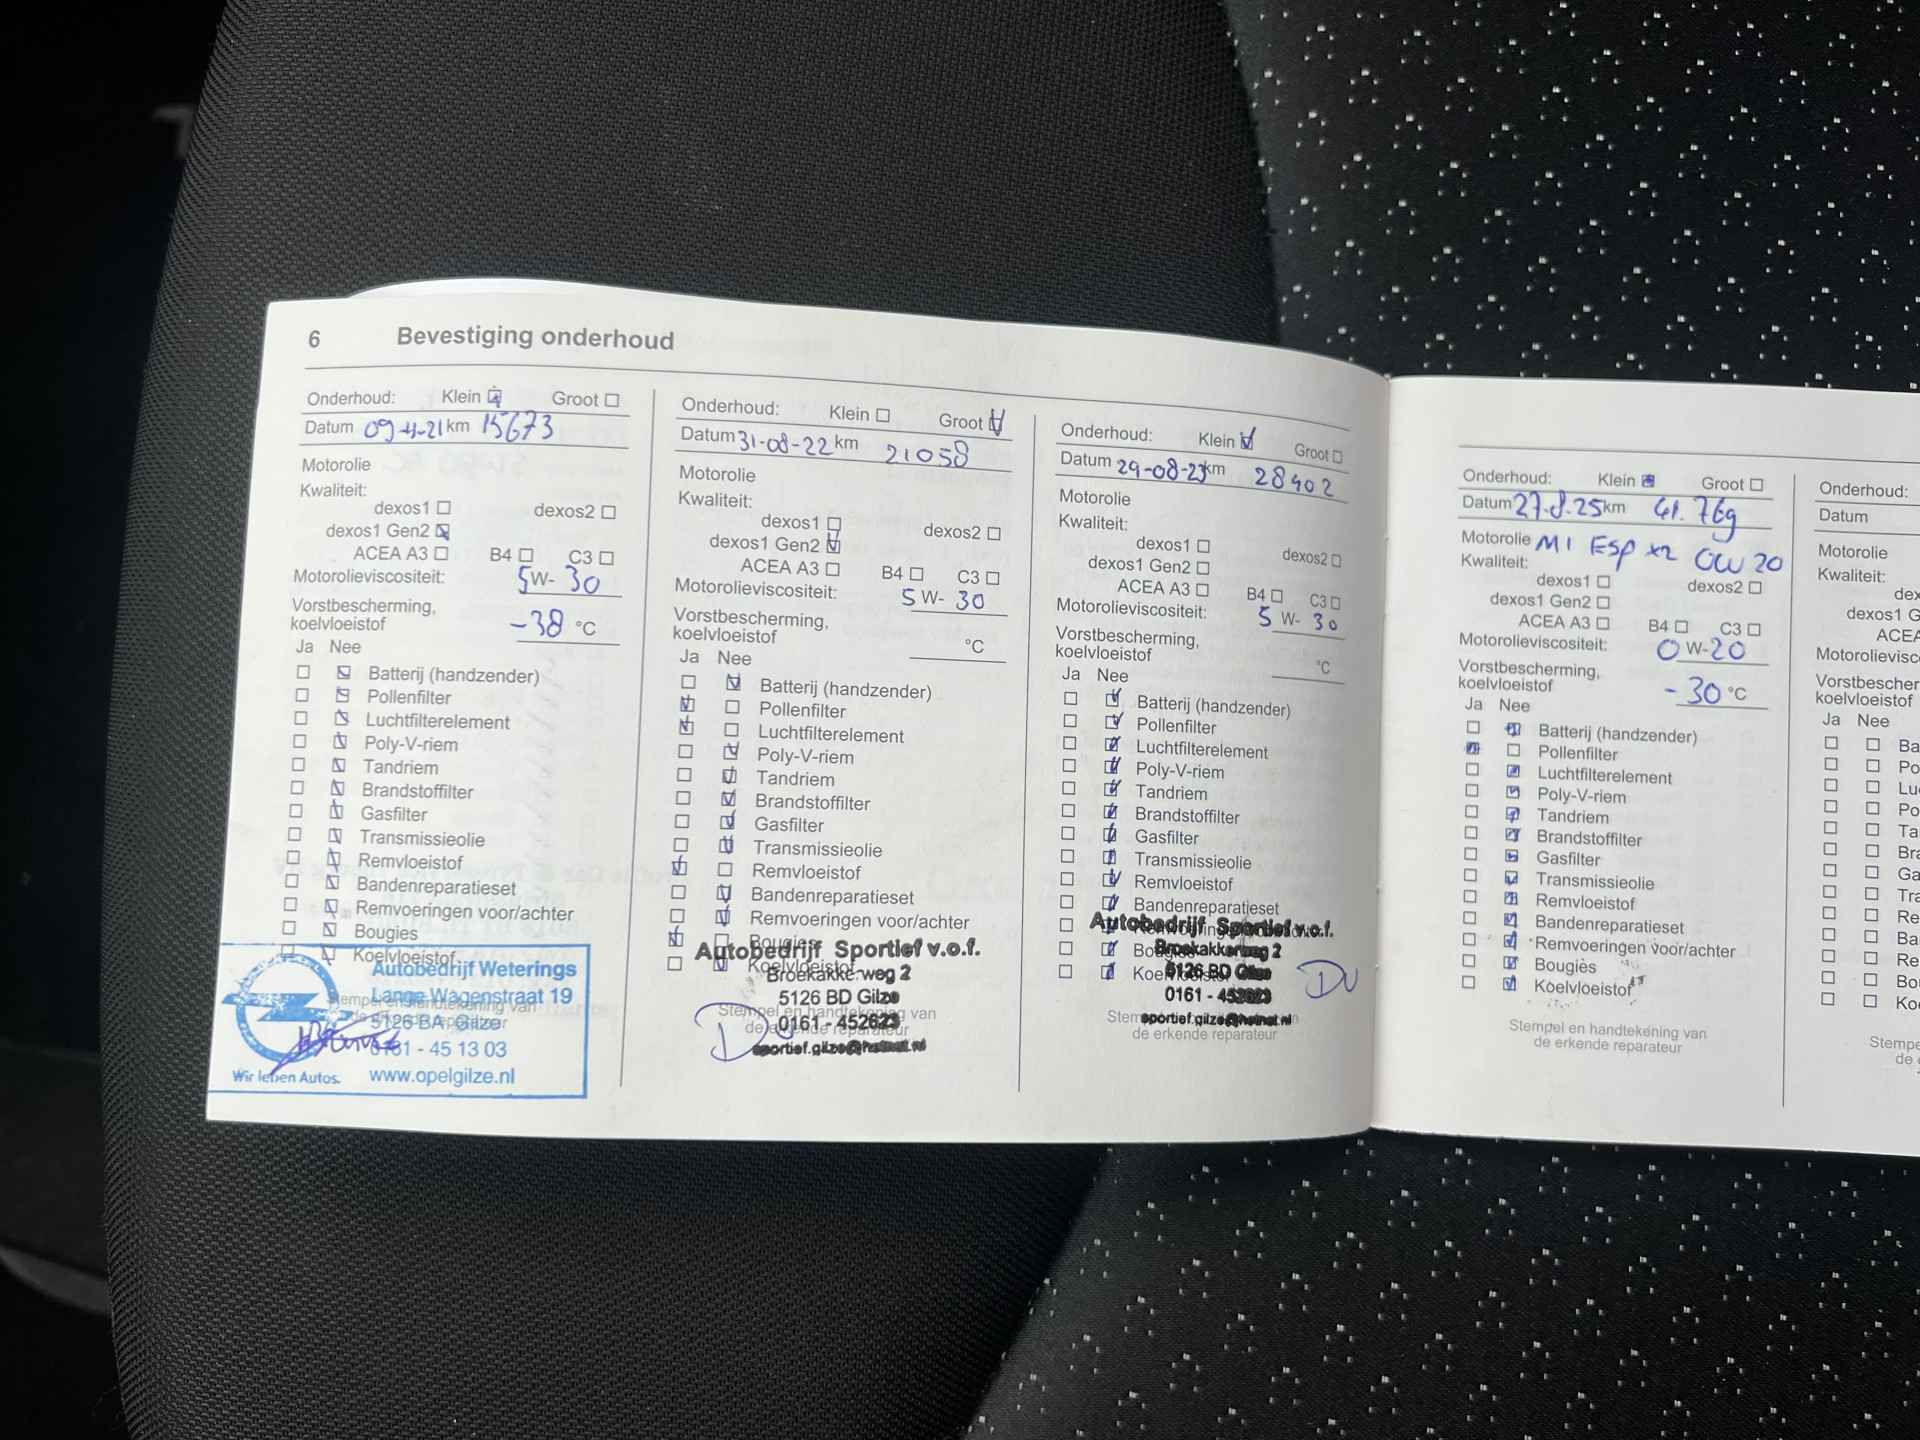 6 Bevestiging onderhoud
Onderhoud: Klein Groot
Datum 09-11-21 km 15673
Motorolie
Kwaliteit:
dexos1 dexos2
dexos1 Gen2
ACEA A3 B4 C3
Motorolieviscositeit: 5W-30
Vorstbescherming,
koelvloeistof -38 °C
Ja Nee
Batterij (handzender)
Pollenfilter
Luchtfilterelement
Poly-V-riem
Tandriem
Brandstoffilter
Gasfilter
Transmissieolie
Remvloeistof
Bandenreparatieset
Remvoeringen voor/achter
Bougies
Koelvloeistof
Autobedrijf Weterings
Lange Wagenstraat 19
Stempel en handtekening van
5126 BA Gilze
de erkende reparateur
0161 - 45 13 03
Wir leben Autos. www.opelgilze.nl
Onderhoud: Klein Groot
Datum 31-08-22 km 21058
Motorolie
Kwaliteit:
dexos1 dexos2
dexos1 Gen2
ACEA A3 B4 C3
Motorolieviscositeit: 5 W- 30
Vorstbescherming,
koelvloeistof °C
Ja Nee
Batterij (handzender)
Pollenfilter
Luchtfilterelement
Poly-V-riem
Tandriem
Brandstoffilter
Gasfilter
Transmissieolie
Remvloeistof
Bandenreparatieset
Remvoeringen voor/achter
Bougies
Autobedrijf Sportief v.o.f.
Koelvloeistof
Broekakkerweg 2
5126 BD Gilze
Stempel en handtekening van
0161 - 452623
de erkende reparateur
sportief.gilze@hetnet.nl
Onderhoud: Klein Groot
Datum 29-08-23 km 28402
Motorolie
Kwaliteit:
dexos1 dexos2
dexos1 Gen2
ACEA A3 B4 C3
Motorolieviscositeit: 5 W- 30
Vorstbescherming,
koelvloeistof °C
Ja Nee
Batterij (handzender)
Pollenfilter
Luchtfilterelement
Poly-V-riem
Tandriem
Brandstoffilter
Gasfilter
Transmissieolie
Remvloeistof
Bandenreparatieset
Autobedrijf Sportief v.o.f.
Broekakkerweg 2
5126 BD Gilze
DV
0161 - 452623
sportief.gilze@hetnet.nl
de erkende reparateur
Onderhoud: Klein Groot
Datum 27.8.25 km 41.769
Motorolie M1 ESP x2 0W20
Kwaliteit:
dexos1 dexos2
dexos1 Gen2
ACEA A3 B4 C3
Motorolieviscositeit: 0 W-20
Vorstbescherming,
koelvloeistof -30 °C
Ja Nee
Batterij (handzender)
Pollenfilter
Luchtfilterelement
Poly-V-riem
Tandriem
Brandstoffilter
Gasfilter
Transmissieolie
Remvloeistof
Bandenreparatieset
Remvoeringen voor/achter
Bougies
Koelvloeistof
Stempel en handtekening van
de erkende reparateur
Onderhoud:
Datum
Motorolie
Kwaliteit:
dex
dexos1 G
ACEA
Motorolievisc
Vorstbescher
koelvloeistof
Ja Nee
Ba
Po
Lu
Po
Ta
Bra
Ga
Tra
Re
Ba
Re
Bou
Koe
Stempe
de e